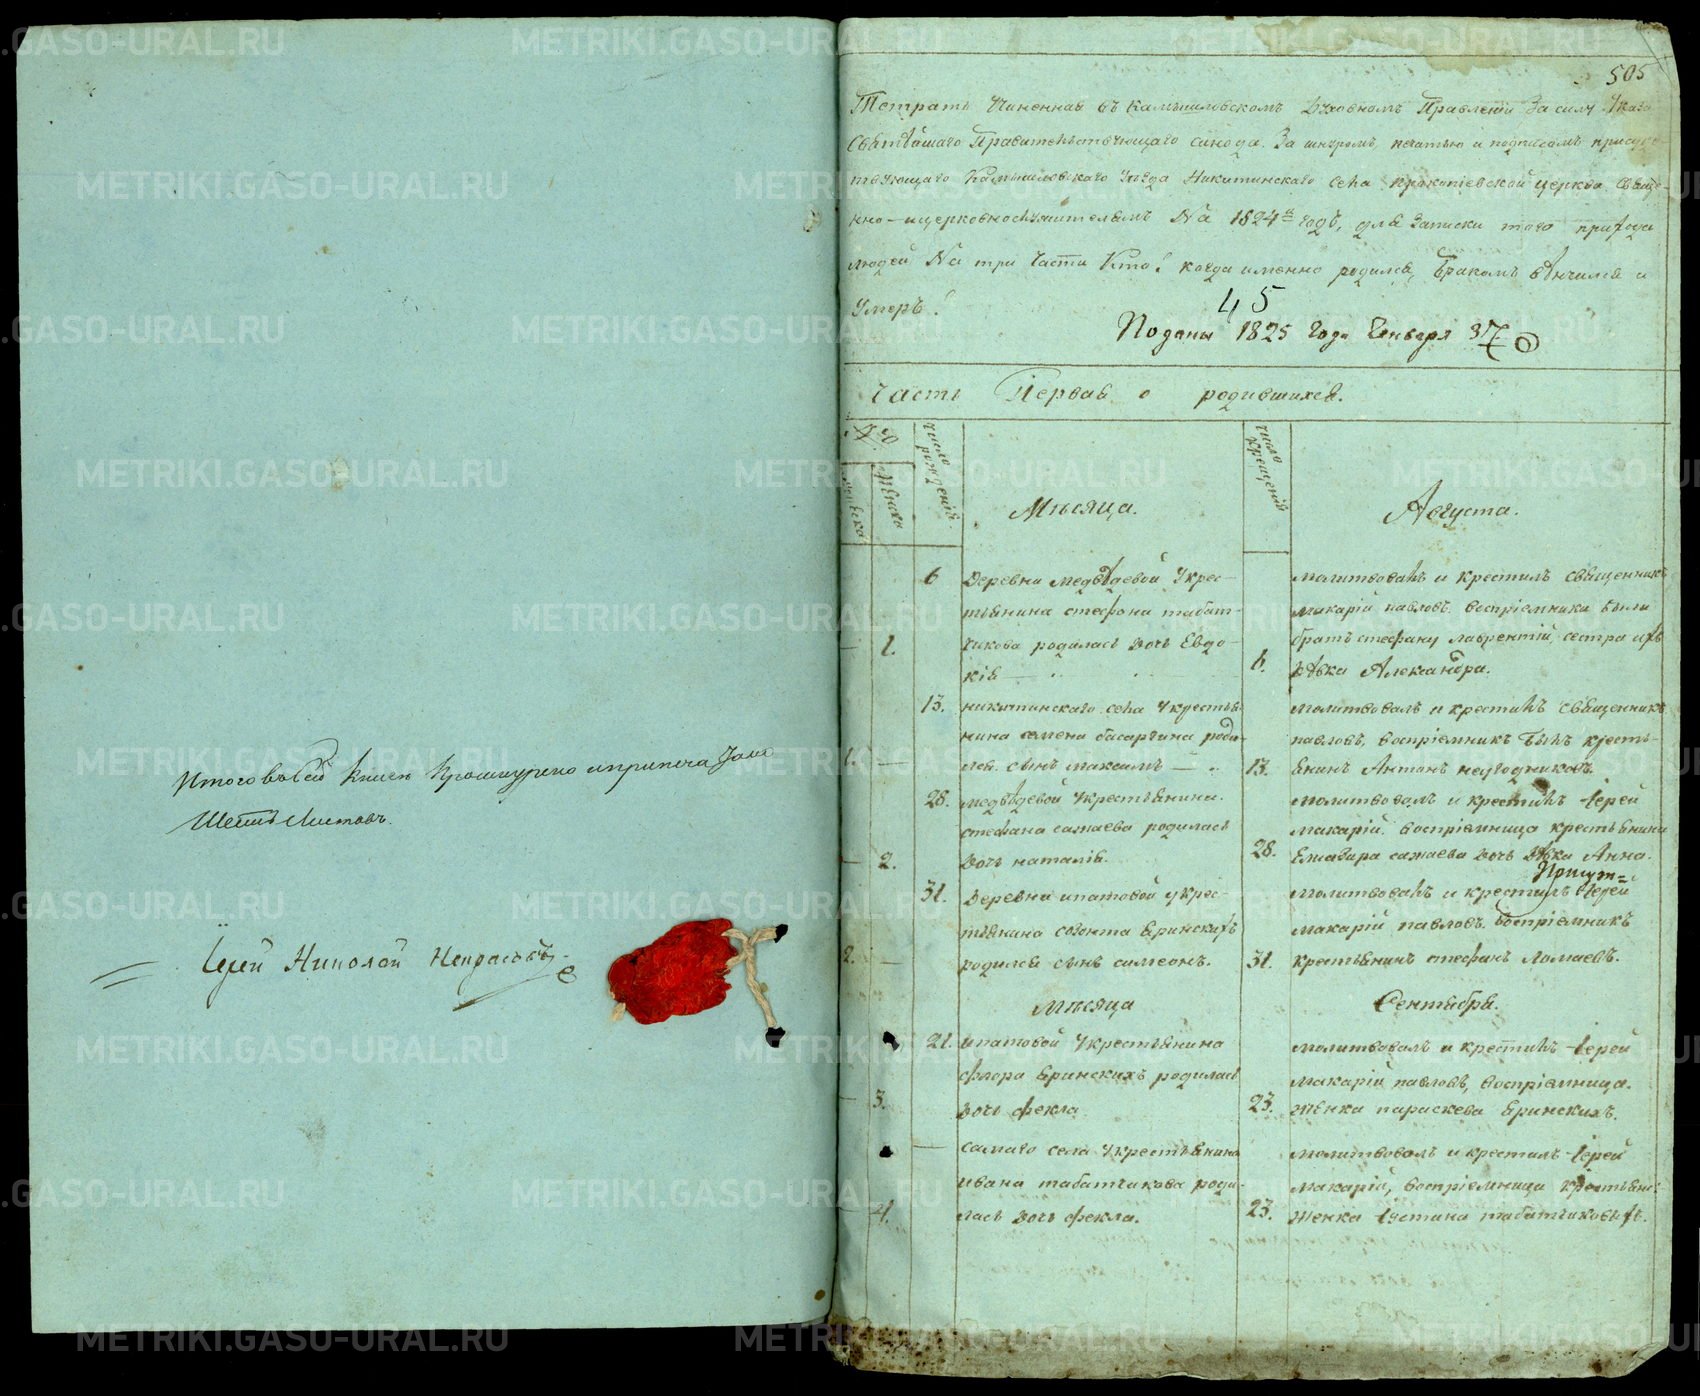 Итого в сей книге прошнурено и припечатано
Шесть листовъ.
Іерей Николай Некрасовъ
505
Тетрать Чиненная въ Камышловскомъ Духовномъ Правленіи За силу Указа
Святѣйшаго Правительствующаго синода. За шнуромъ, печатью и подписомъ присудс-
твующаго Камышловскаго Уезда Никитинскаго села прокопіевской церкви Свяще-
нно-ицерковнослужителямъ На 1824й годъ, для Записки того прихода
людей На три Части Кто? когда именно родился, Бракомъ вѣнчился и
Умеръ?
45
Поданы 1825 Года Генваря 37
Часть Первая о родившихся.
№
мужеска
женска
число рожденія.
Мѣсяца.
число крещенія
Августа.
6
Деревни медвѣдевой Укрес-
тьянина стефана табат-
1.
чикова родилась дочь Евдо-
кія
молитвовалъ и крестилъ священникъ
макарій павловъ. воспріемники были
братъ стефану лаврентій, сестра ихъ
6.
дѣвка Александра.
13.
никитинскаго села Укрестья-
нина семена басаргина роди-
1.
лся. сынъ максимъ
молитвовалъ и крестилъ священникъ
павловъ, воспріемникъ былъ кресть-
13.
янинъ Антонъ неугодниковъ.
28.
медвѣдевой Укрестьянина.
стефана сажаева родилась
2.
дочь наталія.
молитвовалъ и крестилъ іерей
макарій. воспріемница крестьянина
28.
Елиазара сажаева дочь дѣвка Анна.
Присут=
31.
Деревни ипатовой укрес-
тьянина созонта Бринскихъ
2.
родился сынъ симеонъ.
молитвовалъ и крестилъ іерей
макарій павловъ. воспріемникъ
31.
крестьянинъ стефанъ Ломаевъ.
Мѣсяца
Сентября.
21.
ипатовой Укрестьянина
флора Бринскихъ родилась
3.
дочь фекла
молитвовалъ и крестилъ іерей
макарій павловъ, воспріемница.
23.
женка параскева Бринскихъ.
самаго села Укрестьянина
ивана табатчикова роди-
4.
лась дочь фекла.
молитвовалъ и крестилъ іерей
макарій, воспріемница крестьянс:
23.
женка іустина табатчиковыхъ.
METRIKI.GASO-URAL.RU